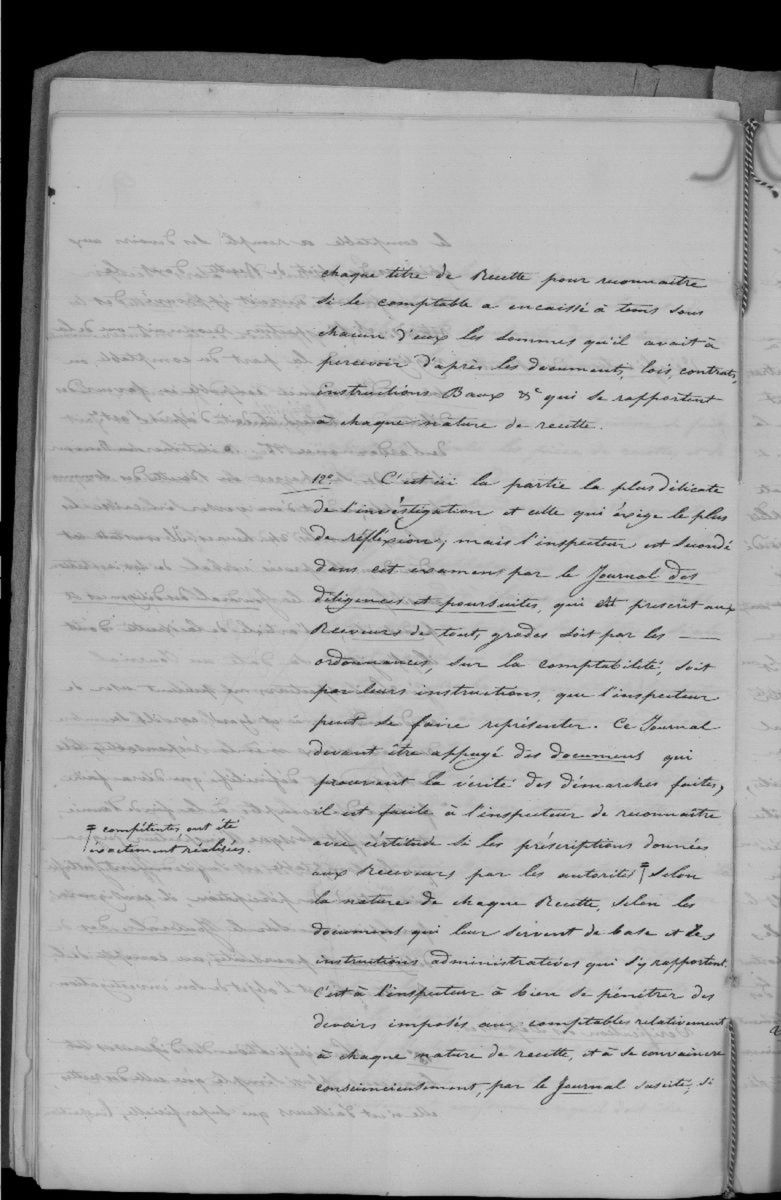 chaque titre de Recette pour reconnaitre
si le comptable a encaissé à tems sous
chacun d'eux les sommes qu'il avait à
percevoir d'après les document, lois, contrats,
instructions Baux &c qui se rapportent
à chaque nature de recette.
12º. C'est ici la partie la plus délicate
de l'investigation et celle qui éxige le plus
de réfléxion; mais l'inspecteur est secondé
dans cet examen par le Journal des
diligences et poursuites, qui est prescrit aux
Receveurs de tout, grades soit par les —
ordonnances, sur la comptabilité, soit
par leurs instructions, que l'inspecteur
peut se faire représenter. Ce Journal
devant être appuyé des documens qui
prouvent la vérité des démarches faites,
il est facile à l'inspecteur de reconnaître
avec certitude si les préscriptions données
aux Receveurs par les autorités ⌗ selon
⌗ compétentes, ont été
éxactement réalisées.
la nature de chaque Recette, selon les
document qui leur servent de base et des
instructions administratives qui s'y rapportent.
C'est à l'inspecteur à bien se pénétrer des
devoirs imposés aux comptables relativement
à chaque nature de recette, et à se convaincre
consciencieusement, par le Journal suscité, si